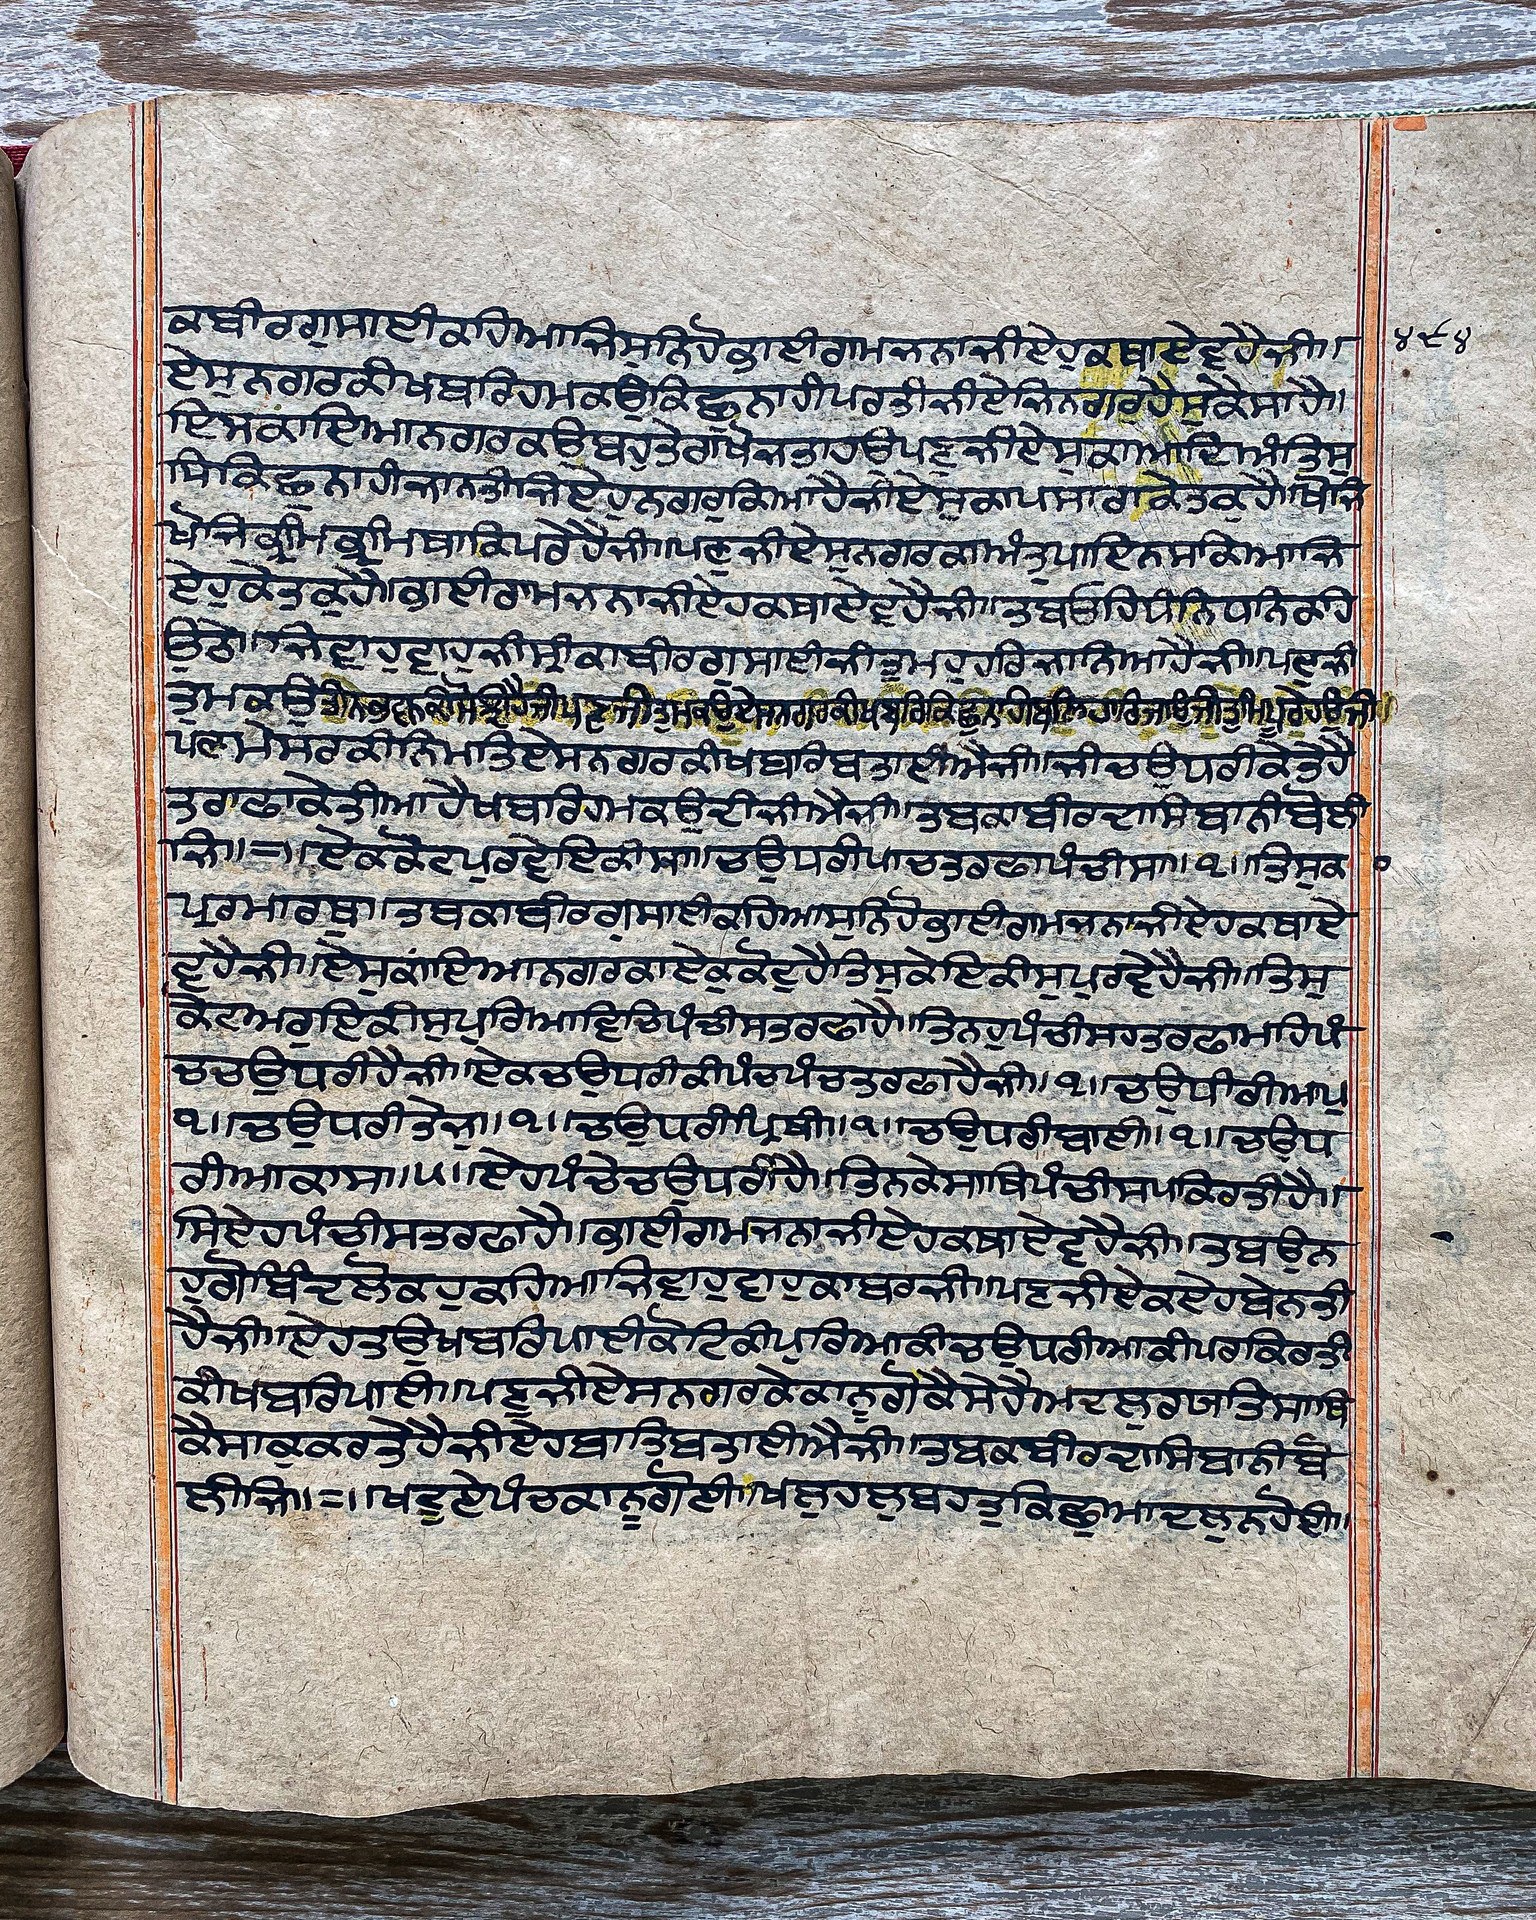 ੪੯੪
ਕਬੀਰਗੁਸਾਈਕਹਿਆਜਿਸੁਨਿਹੋਭਾਈਰਾਮਜਨਾਜੀਏਹੁਕਥਾਏਵਹੈਜੀ॥
ਏਸੁਨਗਰਕੀਖਬਰਿਹਮਕਉਕਿਛੁਨਾਹੀਪਰਤੀਜੀਏਜਿਨਗਰਹੈਸੁਕੈਸਾਹੈ॥
ਇਸਕਾਂਇਆਨਗਰਕਉਬਹੁਤੇਰਾਖੋਜਤਾਹਉਪਣੁਜੀਏਸੁਕਾਆਦਿਅੰਤਿਸੁ
ਧਿਕਿਛੁਨਾਹੀਜਾਨਤੀਜਿਏਹੁਨਗਰੁਕਿਆਹੈਜੀਏਸੁਕਾਪਸਾਰਾਕੇਤਕੁਹੈ॥ਖੋਜਿ
ਖੋਜਿਕ੍ਰੀਮਕ੍ਰੀਮਥਾਕਿਪਰੇਹੈਜੀ॥ਪਣੁਜੀਏਸੁਨਗਰਕਾਅੰਤੁਪਾਇਨਸਕਿਆਜਿ
ਏਹੁਕੇਤਕੁਹੈ॥ਭਾਈਰਾਮਜਨਾਜੀਏਹਕਥਾਏਵਹੈਜੀ॥ਤਬਓਹਿਧੰਨਿਧੰਨਿਕਹਿ
ਉਠੇ॥ਜਿਵਾਹੁਵਾਹੁਜੀਸ੍ਰੀਕਾਬੀਰਗੁਸਾਈਜੀਤੁਮਹੁਹਰਿਜਾਨਿਆਹੈਜੀ॥ਪਣੁਜੀ
ਤੁਮਕਉਤੀਨਿਭਵਨਕੀਸੋਝੀਹੈਜੀਪਣੁਜੀਤੁਮਕਉਏਸਨਗਰਕੀਖਬਰਿਕਿਛੁਨਾਹੀਬਲਿਹਾਰਿਜਾਉਜੀਤੁਮਪੂਰੇਹਉਜੀ
ਪਣਮੇਸਰਕੀਨਿਮਤਿਏਸਨਗਰਕੀਖਬਰਿਬਤਾਈਐਜੀ॥ਜੀਚਉਧਰੀਕੇਤੇਹੈ
ਤਰਾਢਾਕੇਤੀਆਹੈਖਬਰਿਹਮਕਉਦੀਜੀਐਜੀ॥ਤਬਕਾਬੀਰਦਾਸਿਬਾਨੀਬੋਲੀ
ਜਿ॥=॥ਏਕਕੋਟਪੁਰਵੇਇਕੀਸਾ॥ਚਉਧਰੀਪਾਚਤਰਢਾਪੰਚੀਸਾ॥੧॥ਤਿਸੁਕਾ
ਪ੍ਰਰਮਾਰਥੁ॥ਤਬਕਾਬੀਰਗੁਸਾਈਕਹਿਆਸੁਨਿਹੋਭਾਈਰਾਮਜਨਾਜੀਏਹਕਥਾਏ
ਵਹੈਜੀ॥ਏਸੁਕਾਂਇਆਨਗਰਕਾਏਕੁਕੋਟੁਹੈਤਿਸੁਕੇਇਕੀਸੁਪੁਰਵੇਹੈਜੀ॥ਤਿਸੁ
ਕੋਟਅਰੁਇਕੀਸੁਪੁਰਿਆਵਿਚਿਪੰਚੀਸਤਰਢਾਹੈ॥ਤਿਨਹੁਪੰਚੀਸਹਤਰਢਾਮਹਿਪੰ
ਚਚਉਧਰੀਹੈਜੀ॥ਏਕਚਉਧਰੀਕੀਪੰਚਪੰਚਤਰਢਾਹੈਜੀ॥੧॥ਚਉਧੀਰੀਆਪੁ
੧॥ਚਉਧਰੀਤੇਜੁ॥੧॥ਚਉਧਰੀਪ੍ਰਿਥੀ॥੧॥ਚਉਧਰੀਬਾਈ॥੧॥ਚਉਧ
ਰੀਆਕਾਸਾ॥੫॥ਏਹਪੰਚੇਚਉਧਰੀਹੈ॥ਤਿਨਕੇਸਾਥਿਪੰਚੀਸਪਕਿਰਤੀਹੈ॥
ਸਿਏਹਪੰਚੀਸਤਰਢਾਹੈ॥ਭਾਈਰਾਮਜਨਾਜੀਏਹਕਥਾਏਵਹੈਜੀ॥ਤਬਉਨ
ਹੁਗੋਬਿੰਦਲੋਕਹੁਕਹਿਆਜਿਵਾਹੁਵਾਹੁਕਾਬਰਜੀ॥ਪਣਜੀਏਕਏਹਬੇਨਤੀ
ਹੈਜੀ॥ਏਹਤਉਖਬਰਿਪਾਈਕੋਟਿਕੀਪੁਰਿਆਕੀਚਉਧਰੀਆਕੀਪਰਕਿਰਤੀ
ਕੀਖਬਰਿਪਾਈ॥ਪਣੁਜੀਏਸਨਗਰਕੇਕਾਨੂਗੋਕੈਸੇਹੈਅਦਲੁਰਯਤਿਸਾਥਿ
ਕੈਸਾਕੁਕਰਤੇਹੈਜੀਏਹਬਾਤਿਬਤਾਈਐਜੀ॥ਤਬਕਬੀਰਦਾਸਿਬਾਨੀਬੋ
ਲੀਜਿ॥=॥ਖਟੁਏਪੰਚਕਾਨੂਗੋਈ॥ਖਲੁਹਲੁਬਹਤੁਕਿਛੁਆਦਲੁਨਹੋਈ॥